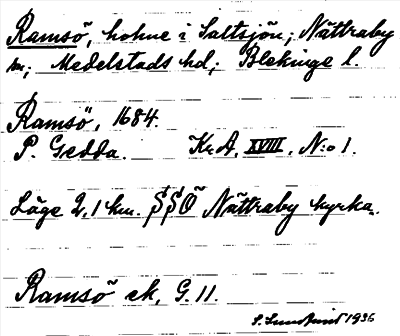 Ramsö, holme i Saltsjön; Nättraby
sn; Medelstads hd; Blekinge l.
Ramsö, 1684.
P. Gedda. Kr. A. XVIII. N:o 1.
Läge 2,1 km. SSÖ Nättraby kyrka.
Ramsö ek, G. 11.
S. Lundqvist 1936